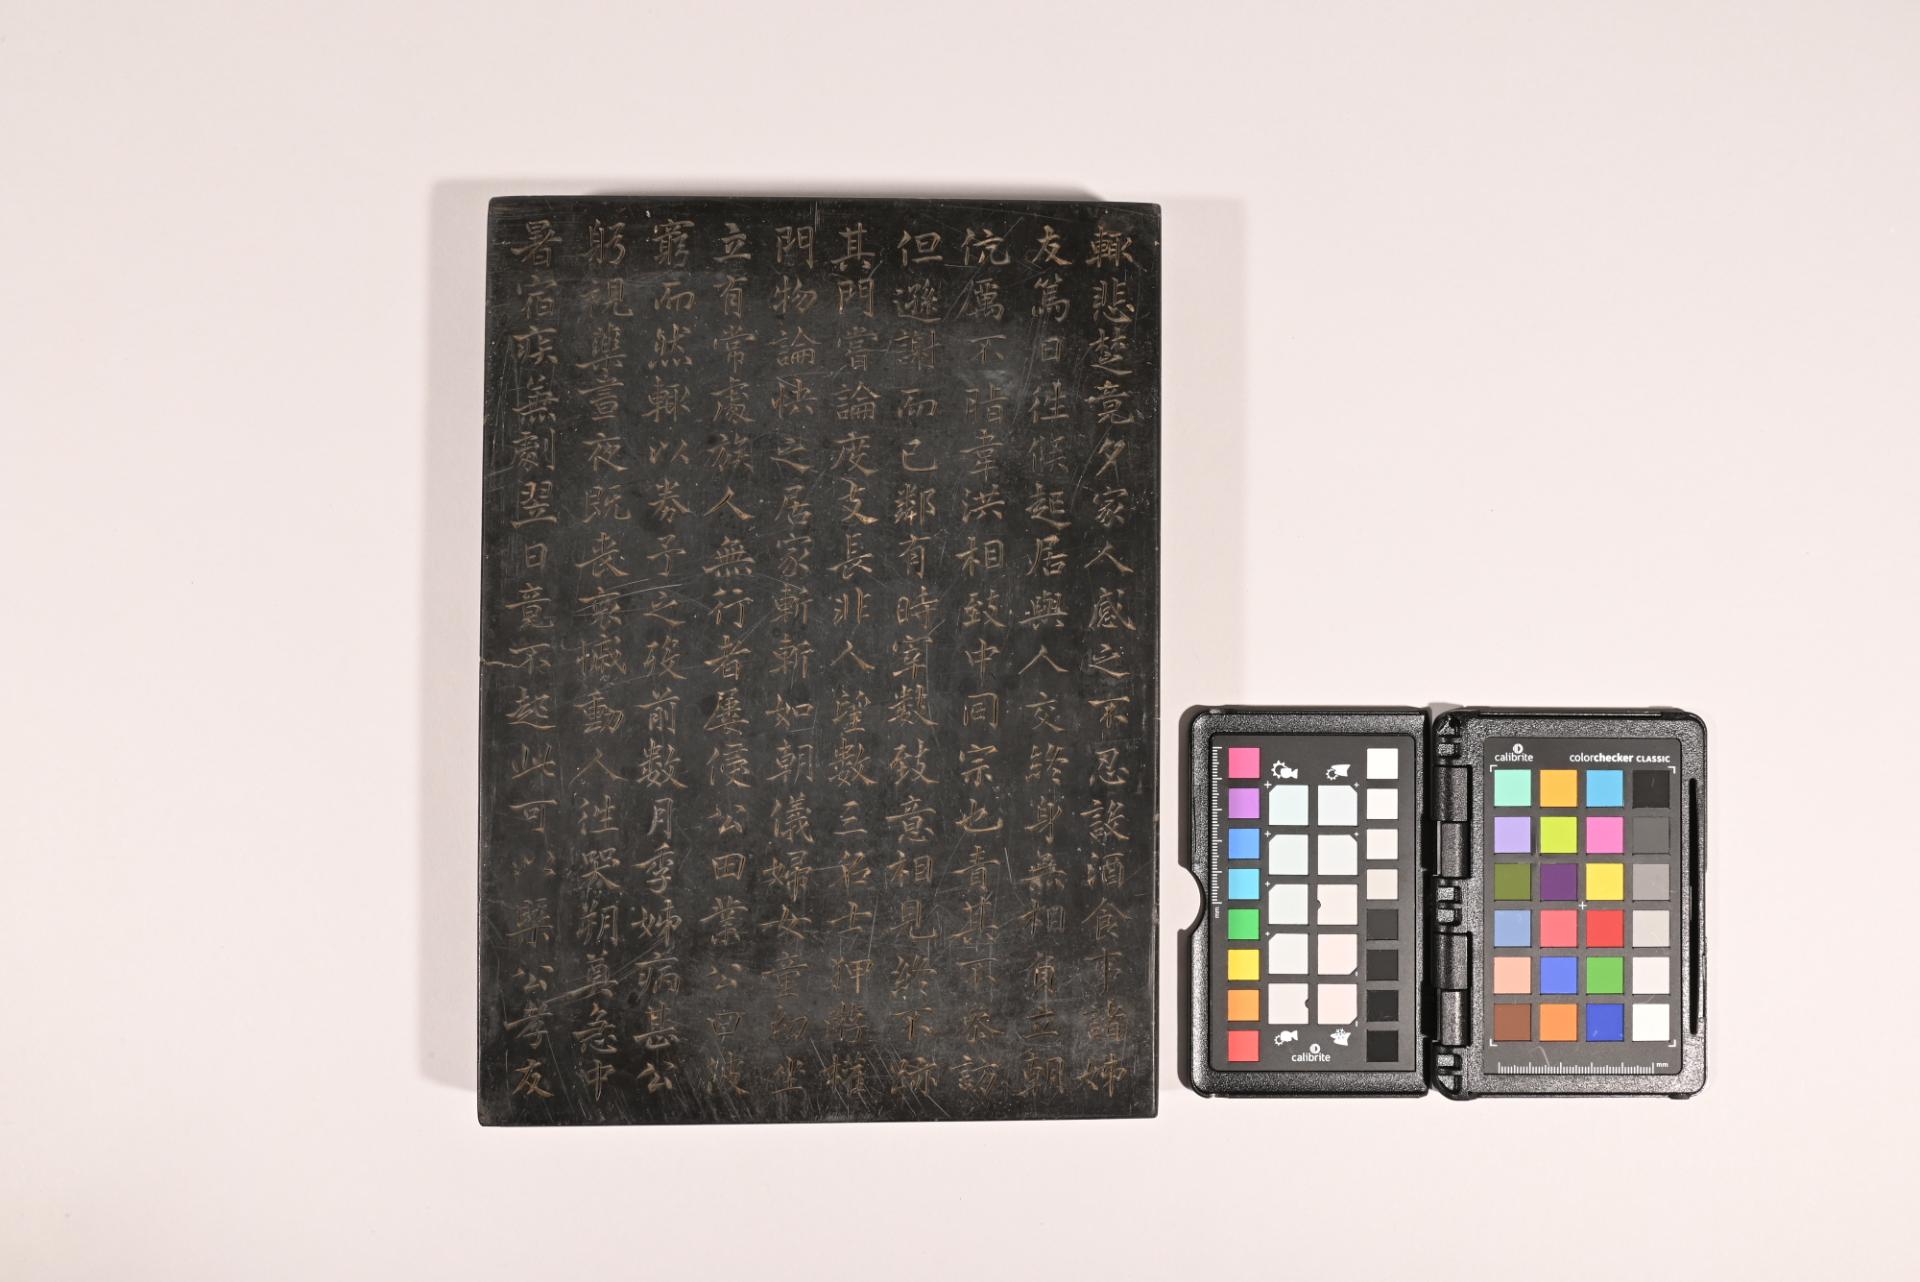 輙悲楚竟夕家人感之不忍設酒食事諸姊
友篤日徃候起居與人交終身無相負立朝
伉厲不韋洪相致中同宗也責其不訪
但遜謝而已鄰有時宰数致意相見終不跡
其門嘗論度支長非人望數三名士狎遊權
門物論快之居家斬斬如朝儀婦女童幼坐
立有常處族人無行者屢侵公田業公曰彼
窮而然輙以劵予之歿前数月季姊病甚公
躬視藥晝夜既丧哀慽動人徃哭朔奠急中
暑宿疾無劇翌日竟不起此可以槩公孝友
calibrite
calibrite colorchecker CLASSIC
mm